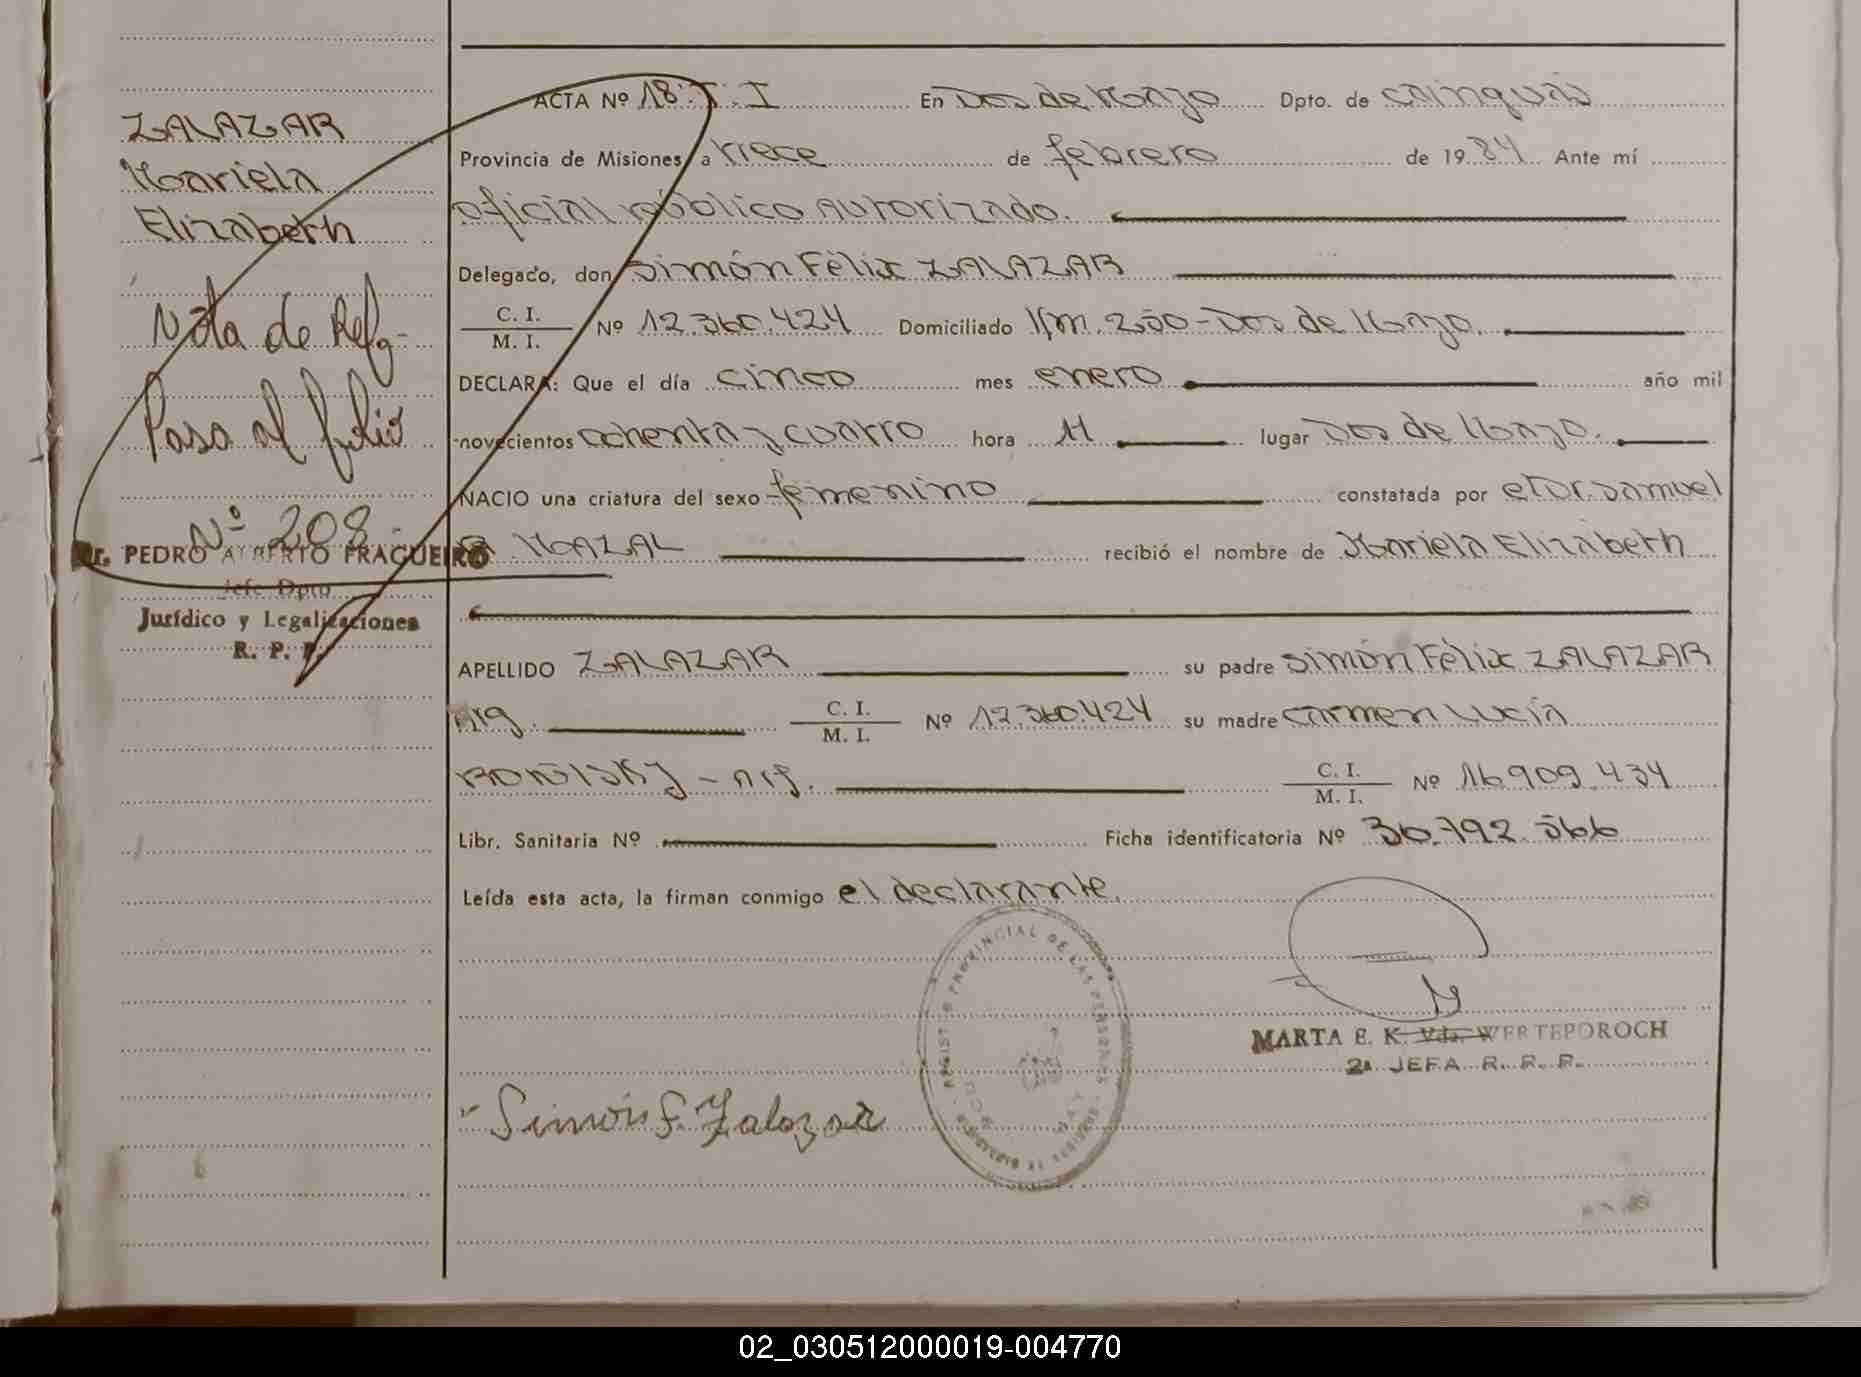 ZALAZAR
Mariela
Elizabeth
Nota de Refª
Pasa al folio
Nº 208
Dr. PEDRO ALBERTO FRAGUEIRO
Jefe Dpto
Jurídico y Legalizaciones
R. P. P.
ACTA Nº 18. T. I En Dos de Mayo Dpto. de Cainguás
Provincia de Misiones, a trece de febrero de 1984 Ante mí
oficial público autorizado.
Delegado, don Simón Félix ZALAZAR
C. I.
M. I. Nº 12.360.424 Domiciliado Km. 250-Dos de Mayo.
DECLARA: Que el día cinco mes enero año mil
novecientos ochenta y cuatro hora 11 lugar Dos de Mayo.
NACIO una criatura del sexo femenino constatada por el Dr. Samuel
MAZAL recibió el nombre de Mariela Elizabeth
APELLIDO ZALAZAR su padre Simón Félix ZALAZAR
Arg. C. I.
M. I. Nº 12.360.424 su madre Carmen Lucía
arg. C. I.
M. I. Nº 16.909.434
Libr. Sanitaria Nº Ficha identificatoria Nº 30.792.566
Leída esta acta, la firman conmigo el declarante.
REGISTRO PROVINCIAL DE LAS PERSONAS
MARTA E. K. Vda. WERTEPOROCH
2ª JEFA R. R. P.
Simón F. Zalazar
02_030512000019-004770